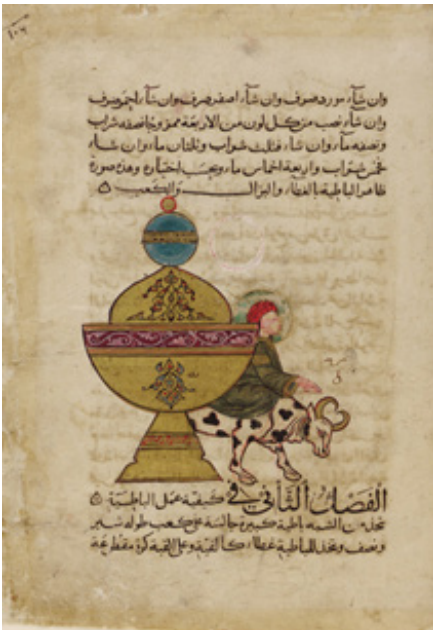 ١٠٦
وان شآء مورد صرف وان شآء اصفر صرف وان شآء احمر صرف
وان شآء نصب من كل لون من الاربعة ممزوجا نصفه شراب
ونصفه مآء وان شآء فثلث شراب وثلثان مآء وان شآء
فخمس شراب واربعة اخماس مآء وبحسب اختياره وهذه صورة
ظاهر الباطية بالغطاء والبزال والكعب ۵
الفصل الثاني في كيفية عمل الباطية ۵
تتخذ من الشبه باطية كبيرة جالسة على كعب طوله شبر
ونصف ويتخذ للباطية غطاء كالقبة وعلى القبة كرة مقطوعة